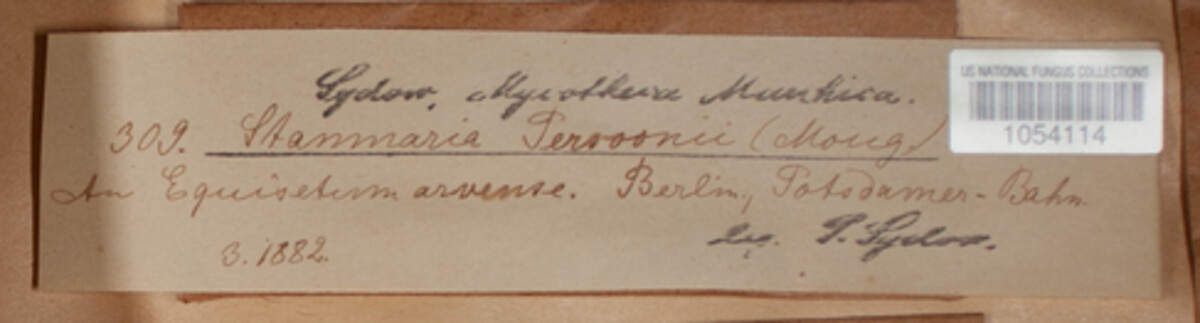 Sydow, Mycotheca Marchica.
US NATIONAL FUNGUS COLLECTIONS
1054114
309. Stammaria Persoonii (Moug)
An Equisetum arvense. Berlin, Potsdamer-Bahn
3. 1882.
leg. P. Sydow.